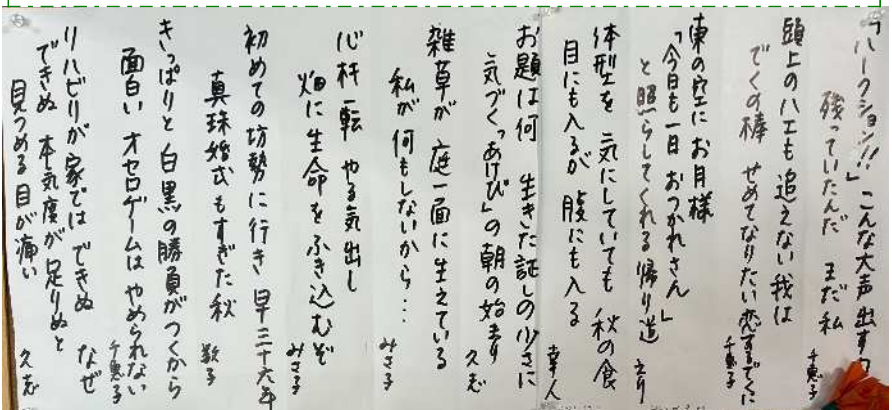 「ハークション!!」こんな大声出す
残っていたんだ まだ私
千恵子
頭上のハエも追えない我は
でくの棒 せめてなりたい恋するでくに
千恵子
東の空にお月様
「今日も一日 おつかれさん」
と照らしてくれる帰り道
体型を 気にしていても 秋の食
目にも入るが 腹にも入る
幸人
お題は何 生きた証しの少さに
気づく「あけび」の朝の始まり
久志
雑草が 庭一面に生えている
私が何もしないから・・・
みさ子
心機一転 やる気出し
畑に生命をふき込むぞ
みさ子
初めての坊勢に行き 早三十六年
真珠婚式もすぎた秋
敦子
きっぱりと 白黒の勝負がつくから
面白い オセロゲームは やめられない
千恵子
リハビリが家では できぬ なぜ
できぬ 本気度が 足りぬと
見つめる目が痛い
久志